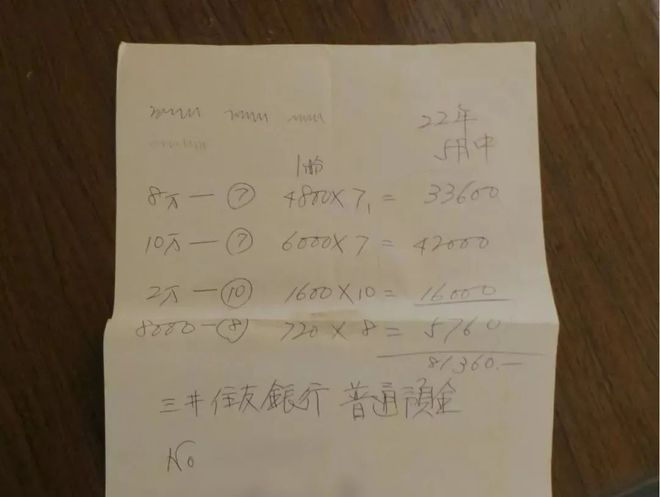 22年
5月中
8万ー⑦ 4800×7 = 33600
10万ー⑦ 6000×7 = 42000
2万ー⑩ 1600×10 = 16000
8000ー⑧ 720×8 = 5760
81,360.—
三井住友銀行 普通預金
No